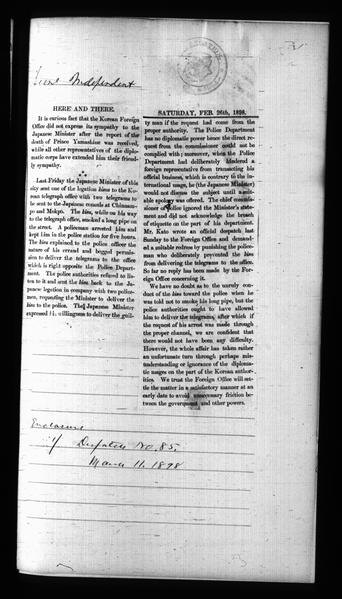 Independent
HERE AND THERE.
It is curious fact that the Korean Foreign
Office did not express its sympathy to the
Japanese Minister after the report of the
death of Prince Yamashine was received,
while all other representatives of the diplo-
matic corps have extended him their friend-
ly sympathy.
Last Friday the Japanese Minister of this
city sent one of the legation hiso to the Ko-
rean telegraph office with two telegrams to
be sent to the Japanese consuls at Chinnam-
po and Mokpo. The hiso, while on his way
to the telegraph office, smoked a long pipe on
the street. A policeman arrested him and
kept him in the police station for five hours.
The hiso explained to the police officer the
nature of his errand and begged permis-
sion to deliver the telegrams to the office
which is right opposite the Police Depart-
ment. The police authorities refused to lis-
ten to it and sent the hiso back to the Ja-
panese legation in company with two police-
men, requesting the Minister to deliver the
hiso to the police. The Japanese Minister
expressed his willingness to deliver the guil-
SATURDAY, FEB. 26th, 1898.
ty man if the request had come from the
proper authority. The Police Department
has no diplomatic power hence the direct re-
quest from the commissioner could not be
complied with; moreover, when the Police
Department had deliberately hindered a
foreign representative from transacting his
official business, which is contrary to the in-
ternational usage, he (the Japanese Minister)
would not discuss the subject until a suit-
able apology was offered. The chief commis-
sioner of police ignored the Minister's state-
ment and did not acknowledge the breach
of etiquette on the part of his department.
Mr. Kato wrote an official despatch last
Sunday to the Foreign Office and demand-
ed a suitable redress by punishing the police-
man who deliberately prevented the hiso
from delivering the telegrams to the office.
So far no reply has been made by the For-
eign Office concerning it.
We have no doubt as to the unruly con-
duct of the hiso toward the police when he
was told not to smoke his long pipe, but the
police authorities ought to have allowed
him to deliver the telegrams, after which if
the request of his arrest was made through
the proper channel, we are confident that
there would not have been any difficulty.
However, the whole affair has taken rather
an unfortunate turn through perhaps mis-
understanding or ignorance of the diplomatic
usages on the part of the Korean author-
ities. We trust the Foreign Office will set-
tle the matter in a satisfactory manner at an
early date to avoid unnecessary friction be-
tween the government and other powers.
Enclosure
1/ Despatch No. 85,
March 11, 1898